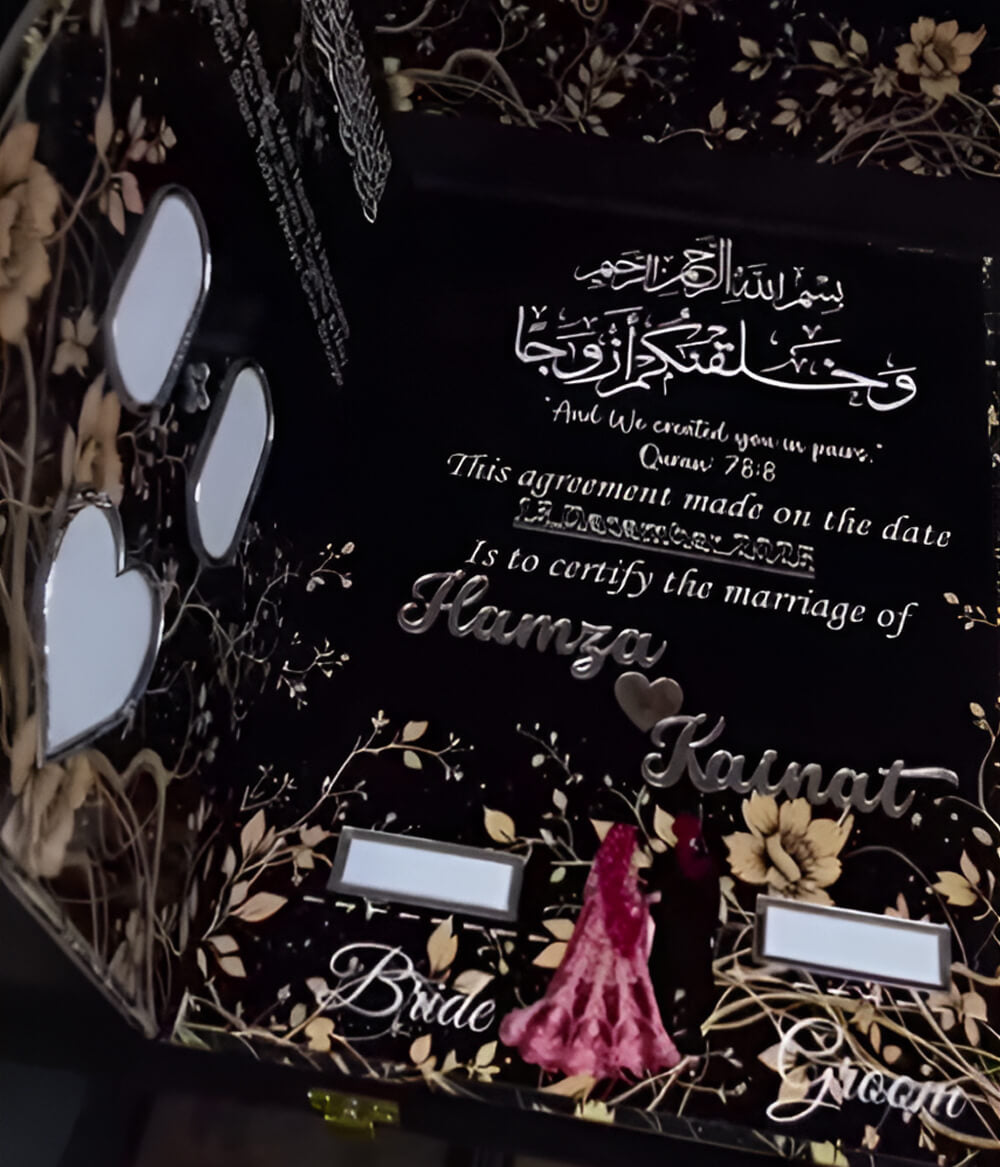 بسم الله الرحمن الرحيم
وَخَلَقْنَكُمْ أَزْوَجًا
"And We created you in pairs."
Quran 78:8
This agreement made on the date
2025
Is to certify the marriage of
Hamza
Kainat
Bride
Groom